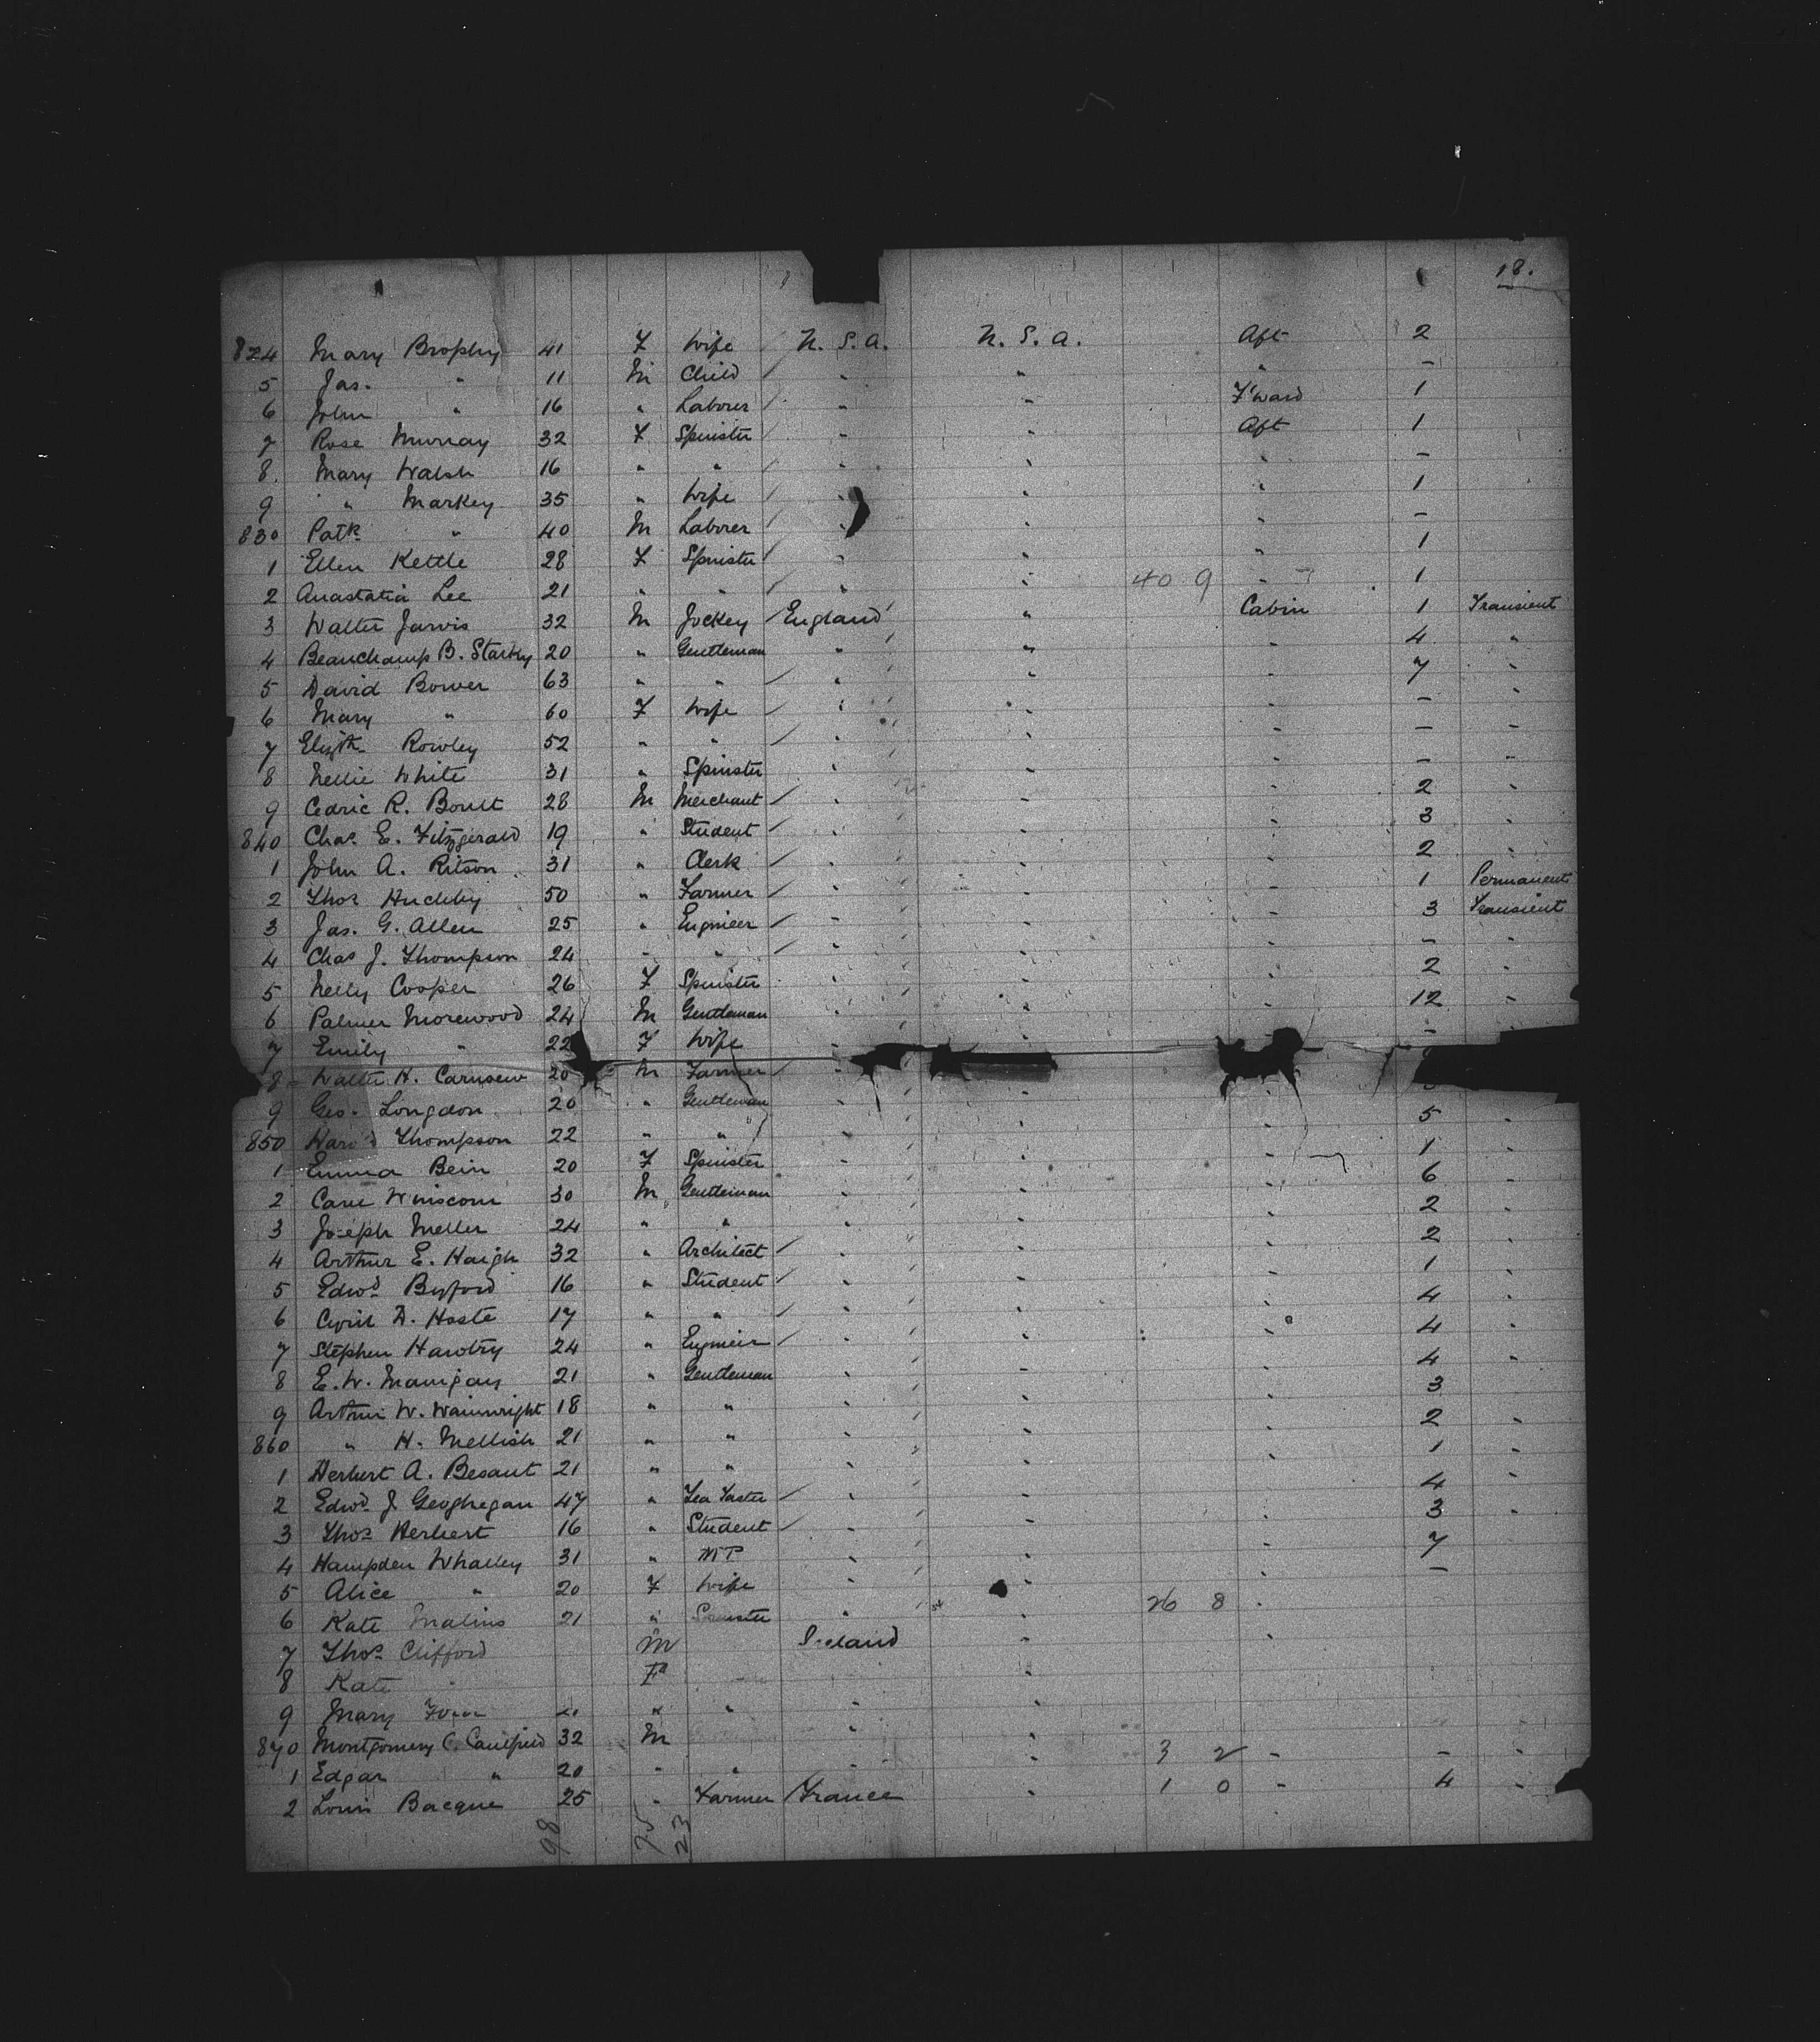 18.
824 Mary Brophy 41 F Wife U. S. A. U. S. A. Aft 2
5 Jas. " 11 M Child " " " -
6 John " 16 " Laborer " " F'ward 1
7 Rose Murray 32 F Spinster " " Aft 1
8 Mary Walsh 16 " " " " " -
9 " Markey 35 " Wife " " " 1
830 Patk " 40 M Laborer " " " -
1 Ellen Kettle 28 F Spinster " " " 1
2 Anastatia Lee 21 " " " " 40 9 " 1
3 Walter Jarvis 32 M Jockey England " Cabin 1 Transient
4 Beauchamp B. Starky 20 " Gentleman " " " 4 "
5 David Bower 63 " " " " " 7 "
6 Mary " 60 F Wife " " " - "
7 Elizth Rowley 52 " " " " " - "
8 Nellie White 31 " Spinster " " " - "
9 Cedric R. Boult 28 M Merchant " " " 2 "
840 Chas. E. Fitzgerald 19 " Student " " " 3 "
1 John A. Ritson 31 " Clerk " " " 2 "
2 Thos 50 " Farmer " " " 1 Permanent
3 Jas. G. Allen 25 " Engineer " " " 3 Transient
4 Chas J. Thompson 24 " " " " " - "
5 Nelly Cooper 26 F Spinster " " " 2 "
6 Palmer Morewood 24 M Gentleman " " " 12 "
7 Emily " 22 F Wife " " " -
8 Walter H. 20 M Farmer "
9 Geo. Longdon 20 " Gentleman " " "
850 Harold Thompson 22 " " " " " 5 "
1 Emma Bein 20 F Spinster " " " 1 "
2 Winscom 30 M Gentleman " " " 6 "
3 Joseph Meller 24 " " " " " 2
4 Arthur E. Haigh 32 " Architect " " " 2 "
5 Edwd Byford 16 " Student " " " 1 "
6 Cyril D. Hoste 17 " " " " " 4 "
7 Stephen Hawtry 24 " Engineer " " " 4 "
8 E. W. 21 " Gentleman " " " 4 "
9 Arthur W. Wainwright 18 " " " " " 3
860 " H. Mellish 21 " " " " " 2 "
1 Herbert A. Besant 21 " " " " " 1 "
2 Edwd J Geoghegan 47 " Tea Taster " " " 4 "
3 Thos Herbert 16 " Student " " " 3 "
4 Hampden Whalley 31 " MP " " " 7
5 Alice " 20 F Wife " " " -
6 Kate Malins 21 " Spinster " " 26 8 "
7 Thos Clifford M Ireland " "
8 Kate " F "
9 Mary " " " "
870 Montgomery C. Caulfield 32 M " " 3 2 " - "
1 Edgar " 20 " " " "
2 Louis Bacque 25 " Farmer France " 1 0 " 4 "
98 75 23